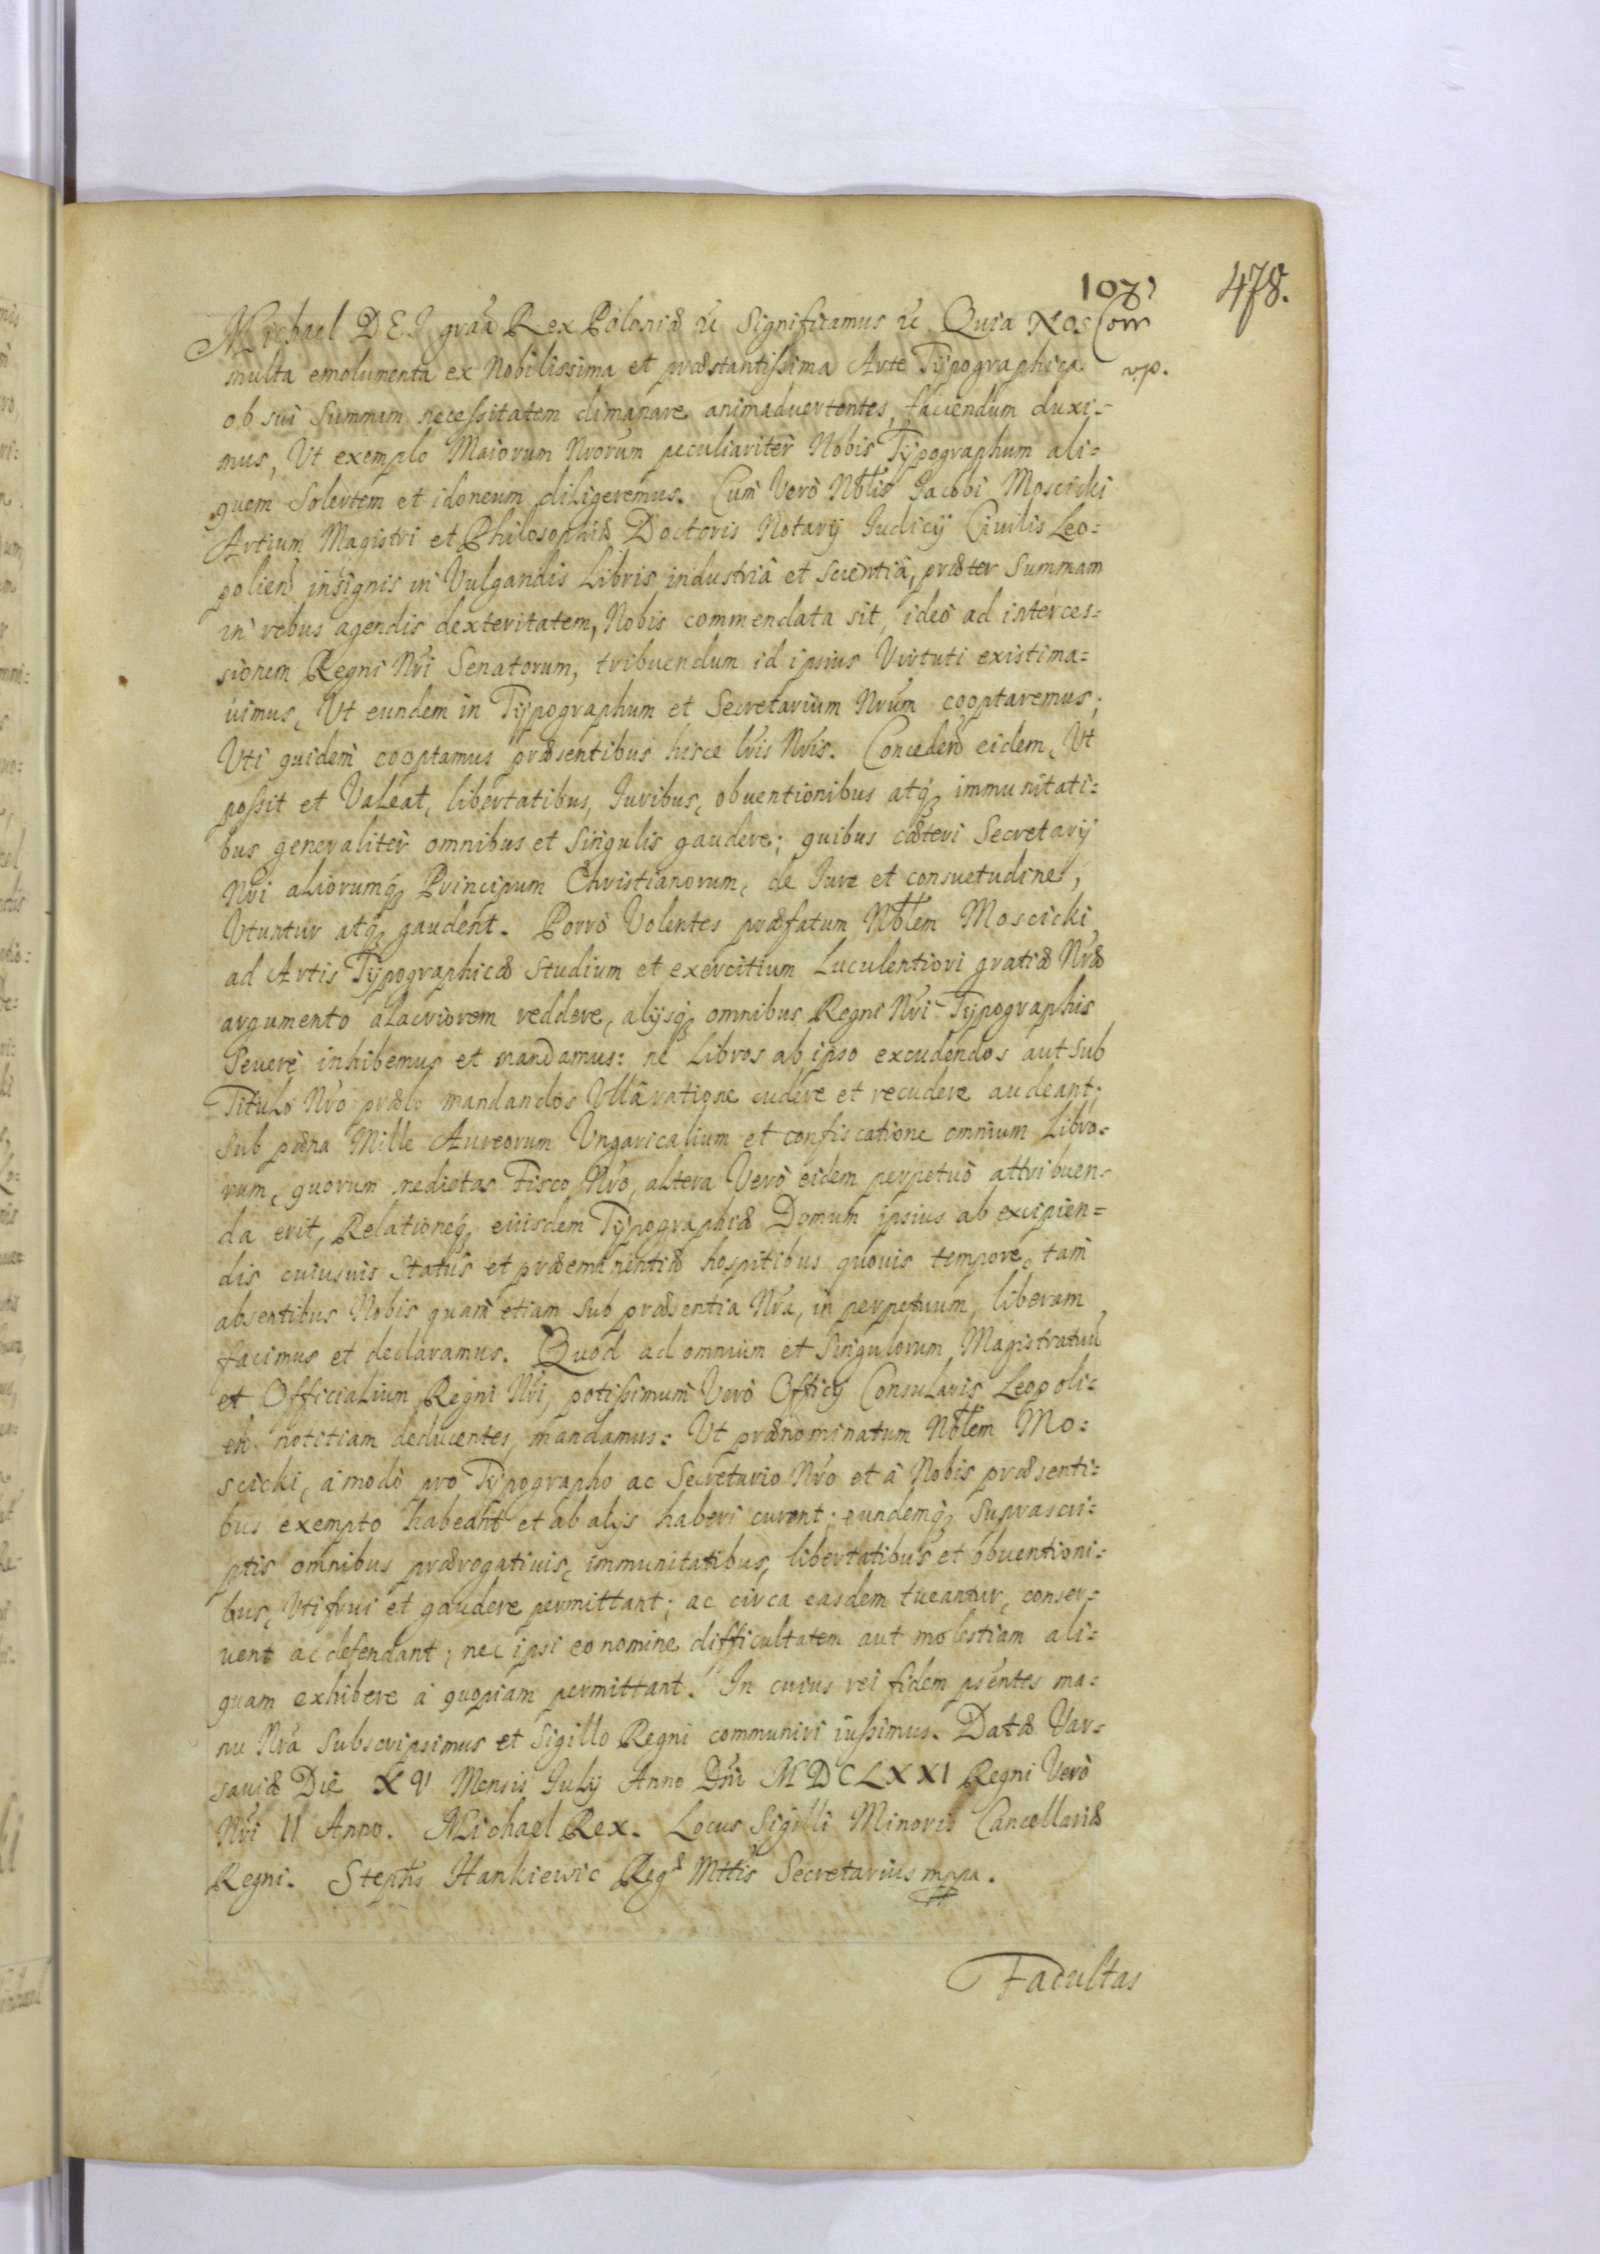 478.
Michael DEI graa Rex Poloniæ &c Significamus &c Quia Nos Corr
multa emolumenta ex Nobilissima et præstantissima Arte Typographica v.p.
ob sui summam necessitatem dimanare animadvertentes, faciendum duxi=
mus, Vt exemplo Maiorum Nrorum peculiariter Nobis Typographum ali=
quem solertem et idoneum diligeremus. Cum Vero Nblis Iacobi Moscicki
Artium Magistri et Philosophiæ Doctoris Notarij Iudicij Ciuilis Leo=
polien insignis in Vulgandis Libris industriâ et scientiâ, præter Summam
in rebus agendis dexteritatem, Nobis commendata sit, ideo ad interces=
sionem Regni Nri Senatorum, tribuendum id ipsius Virtuti existima=
uimus, Vt eundem in Typographum et Secretarium Nrum cooptaremus;
Vti quidem cooptamus præsentibus hisce lris Nris. Conceden eidem, Vt
possit et Valeat, libertatibus, Iuribus, obuentionibus atq immunitati=
bus generaliter omnibus et Singulis gaudere; quibus cæteri Secretarij
Nri aliorumq Principum Christianorum, de Iure et consuetudine,
Vtuntur atq gaudent. Porro Volentes præfatum Nblem Moscicki
ad Artis Typographicæ studium et exercitium Luculentiori gratiæ Nræ
argumento alacriorem reddere, alijsq omnibus Regni Nri Typographis
Seuere inhibemus et mandamus: ne Libros ab ipso excudendos aut sub
Titulo Nro prælo mandandos Vllâ ratione cudere et recudere audeant;
sub pœna Mille Aureorum Vngaricalium et confiscatione omnium Libro=
rum, quorum medietas Fisco Nro, altera Verò eidem perpetuò attribuen=
da erit, Relationeq eiusdem Typographiæ Domum ipsius ab excipien=
dis cuiusuis Statûs et præeminentiæ hospitibus quouis tempore, tam
absentibus Nobis quam etiam sub præsentia Nra, in perpetuum, liberam
facimus et declaramus. Quod ad omnium et Singulorum Magistratuu
et Officialium Regni Nri, potissimum Vero Officij Consularis Leopoli=
en notitiam deducentes, mandamus: Vt prænominatum Nblem Mo=
scicki, amodò pro Typographo ac Secretario Nro et à Nobis præsenti=
bus exempto habeant et ab alijs haberi curent; eundemq Suprascri=
ptis omnibus prærogatiuis, immunitatibus, libertatibus et obuentioni=
bus, Vti frui et gaudere permittant; ac circa easdem tueantur, conser=
uent ac defendant; nec ipsi eo nomine difficultatem aut molestiam ali=
quam exhibere à quopiam permittant. In cuius rei fidem psentes ma=
nu Nra subscripsimus et Sigillo Regni communiri iussimus. Datæ Var=
sauiæ Die XV Mensis Iulij Anno Dni MDCLXXI Regni Verò
Nri II Anno. Michael Rex. Locus Sigilli Minoris Cancellariæ
Regni. Stephs Hankiewic Regæ Mttis Secretarius mppa.
Facultas